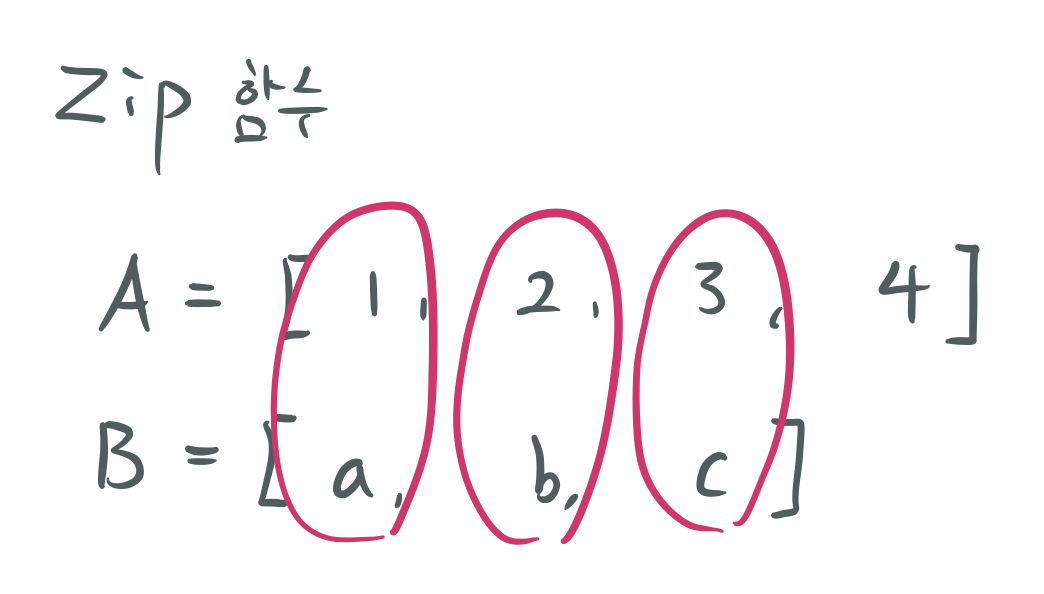 Zip 함수
A = [ 1, 2, 3, 4 ]
B = [ a, b, c ]